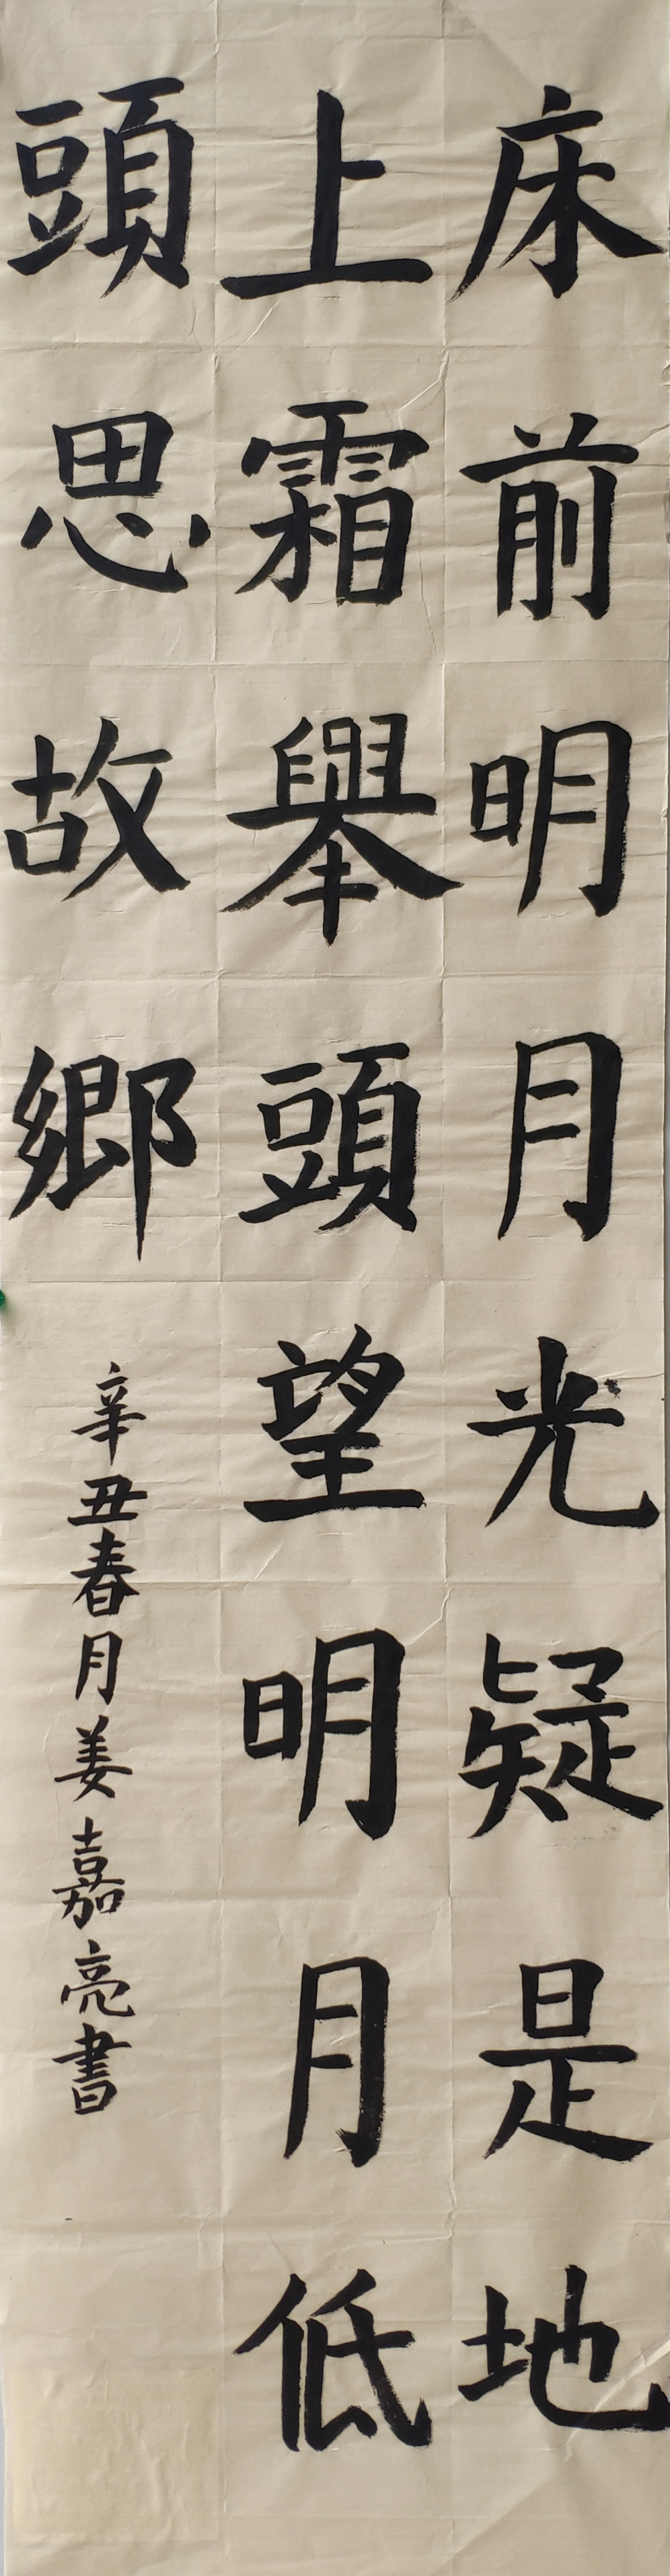 床前明月光疑是地
上霜舉頭望明月低
頭思故鄉
辛丑春月姜嘉亮書